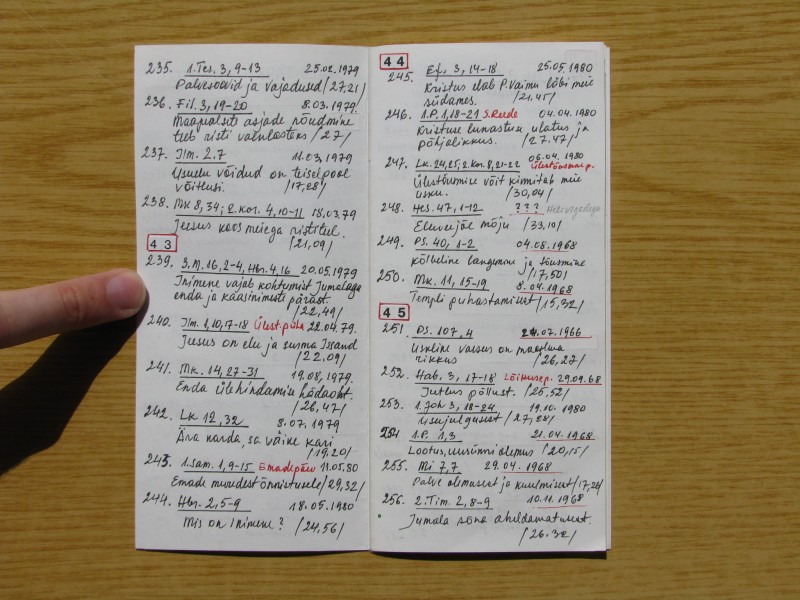 235. 1.Tes. 3, 9-13 25.02.1979
Palvesoovid ja vajadused /27,21/
236. Fil. 3, 19-20 8.03.1979.
Maapealsete asjade nõudmine
teeb risti vaenlasteks /27/
237. Ilm. 2,7 11.03,1979
Usuelu võidud on teiselpool
võitlusi. /17,28/
238. Mk 8,34; 2.Kor. 4,10-11 18.03.79
Jeesus koos meiega ristiteel.
/21,09/
43
239. 3.M. 16,2-4, Hbr. 4,16 20.05.1979
Inimene vajab kohtumist Jumalaga
enda ja kaasinimeste pärast.
/22,49/
240. Ilm. 1,10,17-18 Ülest. püha 22.04.79.
Jeesus on elu ja surma Issand
/22,09/
241. Mk. 14,27-31 19.08,1979.
Enda ülehindamise hädaoht.
/26,47/
242. Lk 12,32 8.07.1979
Ära karda, sa väike kari
/19,20/
243. 1.Sam. 1,9-15 Emadepäev 11.05.80
Emade muredest õnnistusele /29,32/
244. Hbr. 2,5-9 18.05.1980
Mis on inimene? /24,56/
44
245. Ef. 3, 14-18 25.05.1980
Kristus elab P. Vaimu läbi meie
südames. /21,45/
246. 1.P. 1,18-21 S. Reede 04.04.1980
Kristuse lunastuse ulatus ja
põhjalikkus. /27.47/
247. Lk. 24,25; 2.Kor. 8,21-22 06.04.1980
Ülestõusmisp.
Ülestõusmise võit kinnitab meie
usku. /30,04/
248. Hes. 47, 1-12 ???
Eluveejõe mõju /33,10/
249. Ps. 40, 1-2 04.08.1968
Kõlbeline langemine ja tõusmine
/17,50/
250. Mk. 11, 15-19 8.04.1968
Templi puhastamisest /15,32/
45
251. Ps. 107,4 24.07.1966
Usuline vaesus on maailma
rikkus /26,27/
252. Hab. 3, 17-18 Lõikusep. 29.09.68
Jutlus põllust. /25,52/
253. 1.Joh 3, 18-24 19.10.1980
Usujulgusest /27,28/
254 1.P. 1,3 21.04.1968
Lootus, uuesündi olemus /20,15/
255. Mt 7,7 29.04.1968
Palve olemusest ja kuulmisest /17,24/
256. 2.Tim. 2, 8-9 10.11.1968
Jumala sõna aheldamatusest.
/26.32/